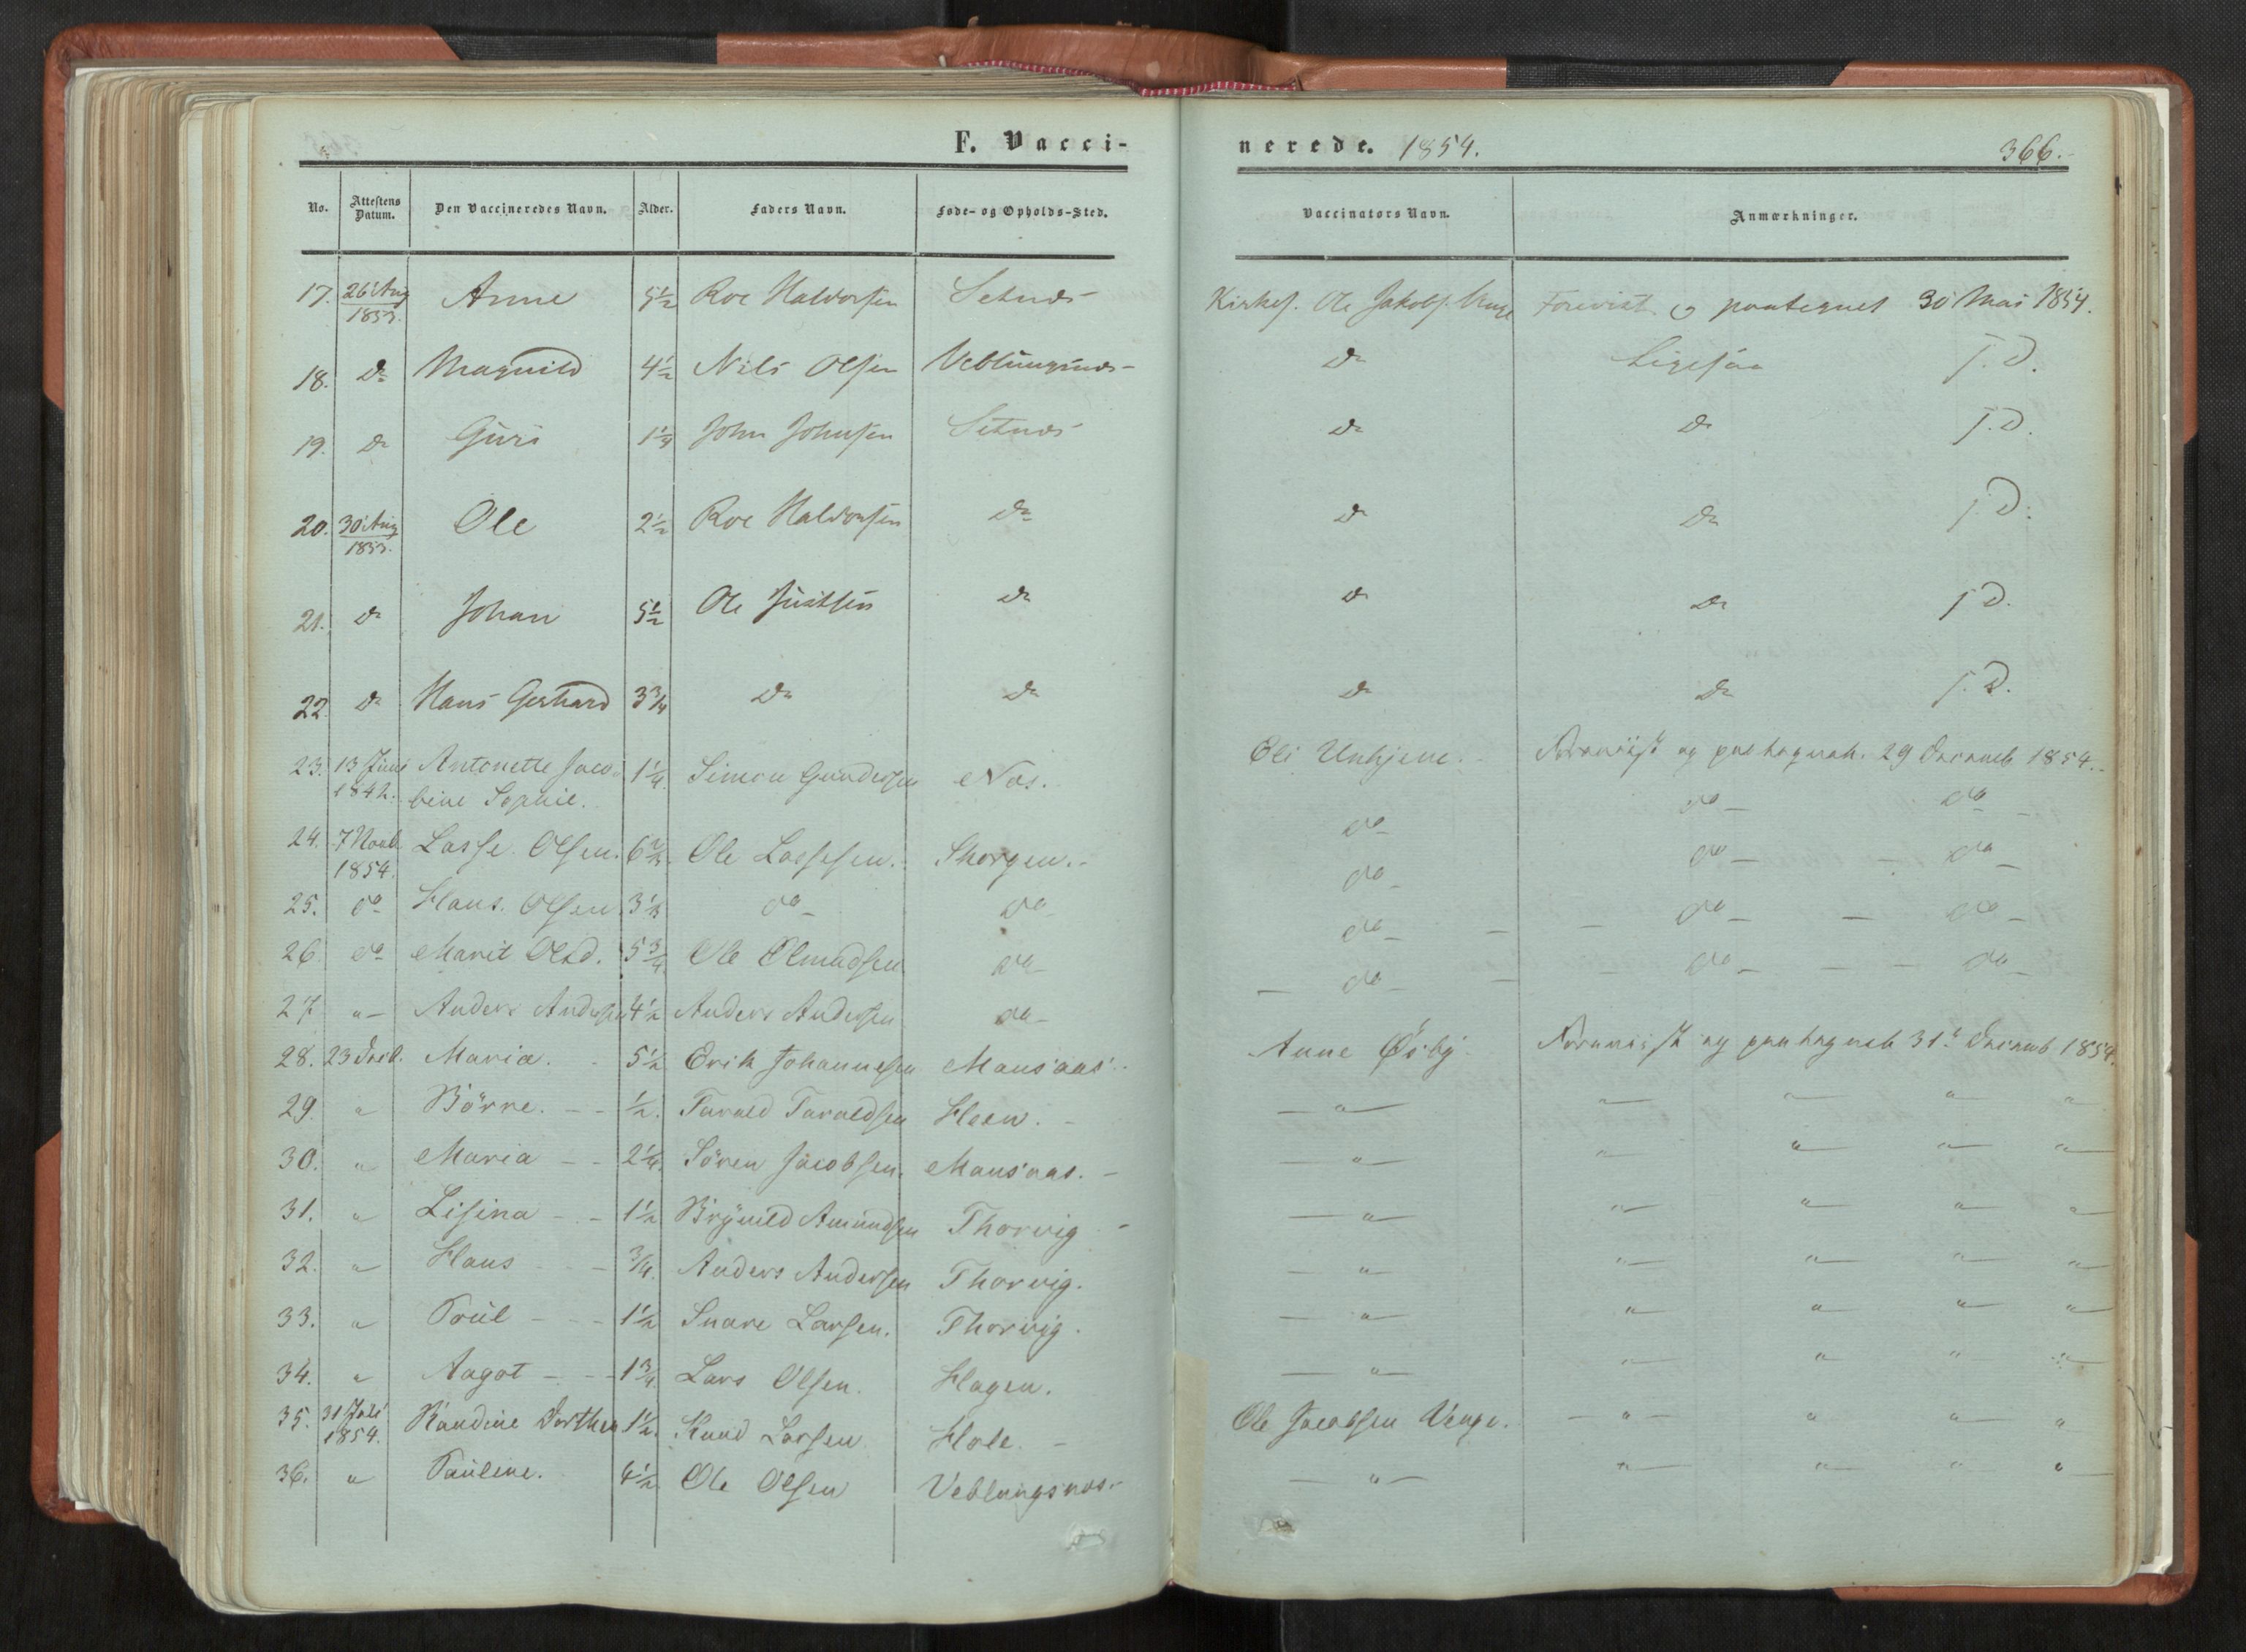 F. Vacci-
nerede. 1854. 366.
No. Attestens Datum. Den Vaccineredes Navn. Alder. Faders Navn. Føde- og Opholds-Sted. Vaccinators Navn. Anmærkninger.
17. 26 Aug 1853. Anne 5½ Roe Haldorsen Setnæs Kirkes. Ole Jakobs. Venge Foreviist og paategnet 30 Mai 1854.
18. Do Magnild 4½ Nils Olsen Veblungsnæs Do Ligesaa J.D.
19. Do Guri 1¼ John Johnsen Setnæs Do Do J.D.
20. 30 Aug 1853. Ole 2½ Roe Haldorsen Do Do Do J.D.
21. Do Johan 5½ Ole Do Do Do J.D.
22. Do Hans Gerhard 3¾ Do Do Do Do J.D.
23. 13 Juni 1842. Antonette Jaco- 1¼ Simon Gundersen Næs. Eli Unhjem. Foreviist og paategnet. 29 Decemb 1854.
bine Sophie.
24. 7 Novb. 1854. Lasse Olsen. 6½ Ole Lassesen. Skorgen. do do do
25. do Hans. Olsen 3⅓ do do do do do
26. do Marit Olsd. 5¾ Ole Olmudsen do do do do
27 " Anders Andersen 4½ Anders Andersen do do do do
28. 23 Decb. Maria. 5½ Erik Johannesen Mansaas. Anne Øsby. Foreviist og paategnet 31 Decemb 1854.
29 " Börre. ½. Tarald Taraldsen Heen. " " " " "
30. " Maria 2¼. Sören Jacobsen. Mansaas. " " " " "
31. " Lisina 1½ Brynild Amundsen Thorvig " " " " "
32. " Hans ¾. Anders Andersen Thorvig. " " " " "
33. " Poul 1½ Snare Larsen. Thorvig. " " " " "
34. " Aagot 1¾ Lars Olsen. Hagen. " " " " "
35. 31 Juli 1854. Randine Dorthea 1½. Knud Larsen Hole. Ole Jacobsen Venge. " " " "
36. " Pauline. 4½ Ole Olsen Veblungsnæs. " " " " "